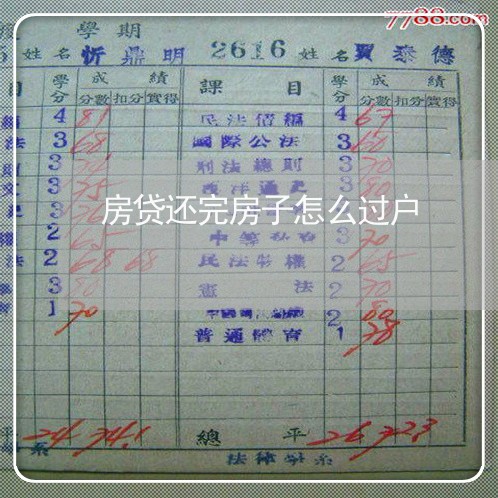 7788.com
學期
姓名 忻鼎明 2616 姓名 賈泰德
目 學分 成績 課目 學分 成績
分數 扣分 實得 分數 扣分 實得
4 81 民法債編 4 67
法 3 68 國際公法 3 60
3 刑法總則 3 70
3 75 西洋通史 3 80
房贷还完房子怎么过户
2 65 3 70
法 2 68 68 民法物權 2 65
3 80 憲法 2 70
1 70 2 80
普通體育 1 78
平 24 74.1 總平 26 72.3
系 法律學系